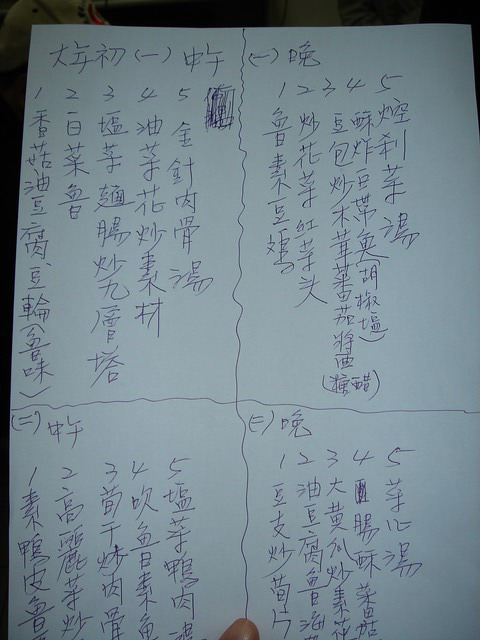 大年初(一)中午
1香菇油豆腐、豆輪(魯味)
2白菜魯
3塩菜麵腸炒九層塔
4油菜花炒素材
5金針肉骨湯
(一)晚
1魯素豆鸡
2炒花菜紅菜头
3豆包炒木茸蕃茄將
4酥炸白帶魚(胡椒塩)
(糖醋)
5焢刈菜湯
(二)中午
1素鴨皮魯
2高麗菜炒
3筍干炒肉骨
4吹魯素魚
5塩菜鴨肉湯
(二)晚
1豆支炒荀片
2油豆腐魯海
3大黃瓜炒素花
4腸酥蕃茄
5菜心湯